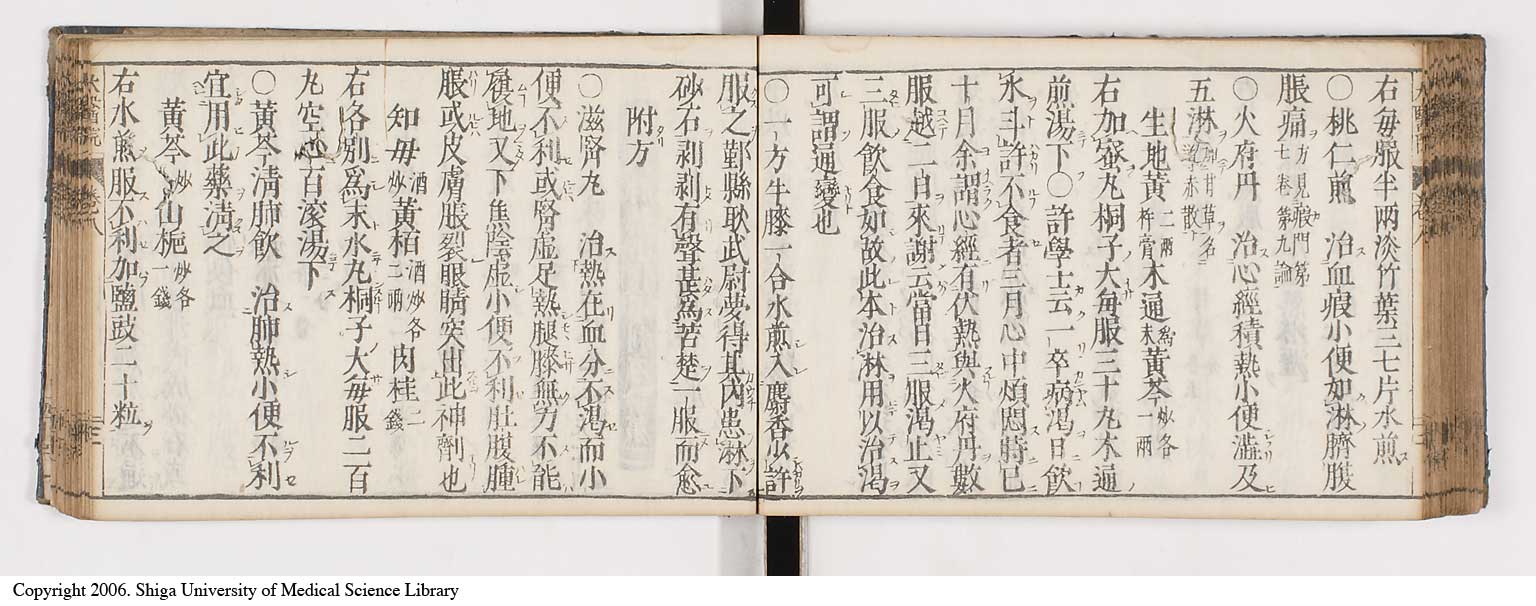 右毎服半兩淡竹葉二七片水煎
○桃仁煎　治血瘕小便如淋臍腹
脹痛方見瘕門第七卷第九論
○火府丹　治心經積熱小便澁及
五淋
生地黃二兩杵膏木通爲末黃芩炒各一兩
右加蜜丸桐子大毎服三十丸木通
煎湯下○許學士云一卒病渴日飮
水斗許不食者三月心中煩悶時巳
十月余謂心經有伏熱與火府丹數
服越二日來謝云當日三服渴止又
三服飮食如故此本治淋用以治渴
可謂通變也
○一方牛膝一合水煎入麝香少許
服之鄞縣耿武尉夢得其內患淋下
砂石剥剥有聲甚爲苦楚一服而愈
附方
○滋腎丸　治熱在血分不渴而小
便不利或腎虛足熱腿膝無力不能
履地又下焦陰虛小便不利肚腹腫
脹或皮膚脹裂眼睛突出此神劑也
知毋酒炒黃栢酒炒各二兩肉桂二錢
右各別爲末水丸桐子大毎服二百
丸空心百滚湯下
○黃芩淸肺飮　治肺熱小便不利
宜用此藥淸之
黃芩炒山梔炒各一錢
右水煎服不利加鹽豉二十粒
Copyright 2006. Shiga University of Medical Science Library